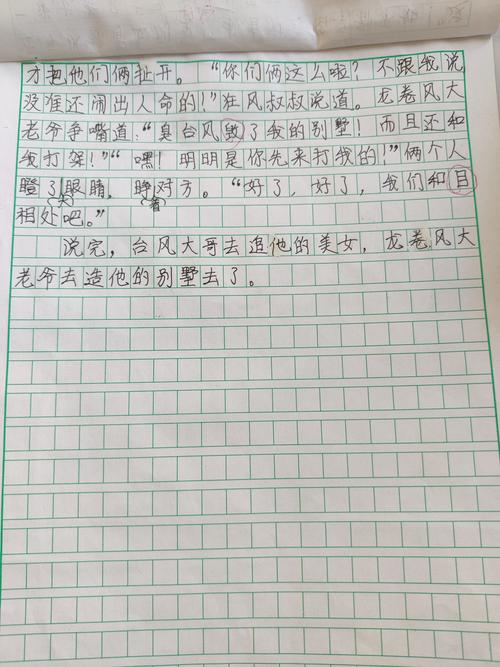 才把他们俩扯开。“你们俩这么啦？不跟我说
没准还闹出人命的！”狂风叔叔说道。龙卷风大
老爷争嘴道：“臭台风毁了我的别墅！而且还和
我打架！”“嘿！明明是你先来打我的！”俩个人
瞪了大眼睛，睁着对方。“好了，好了，我们和目
相处吧。”
说完，台风大哥去追他的美女，龙卷风大
老爷去造他的别墅去了。